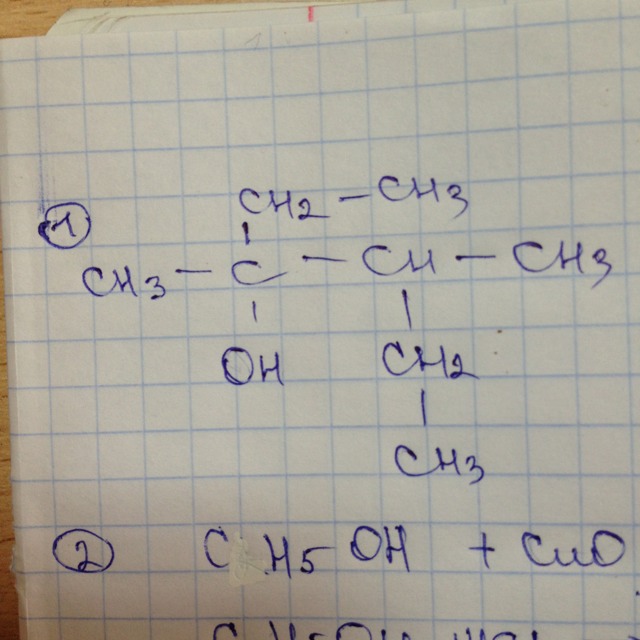 1
CH2 - CH3
CH3 - C - CH - CH3
OH CH2
CH3
2 C H5 - OH + CuO